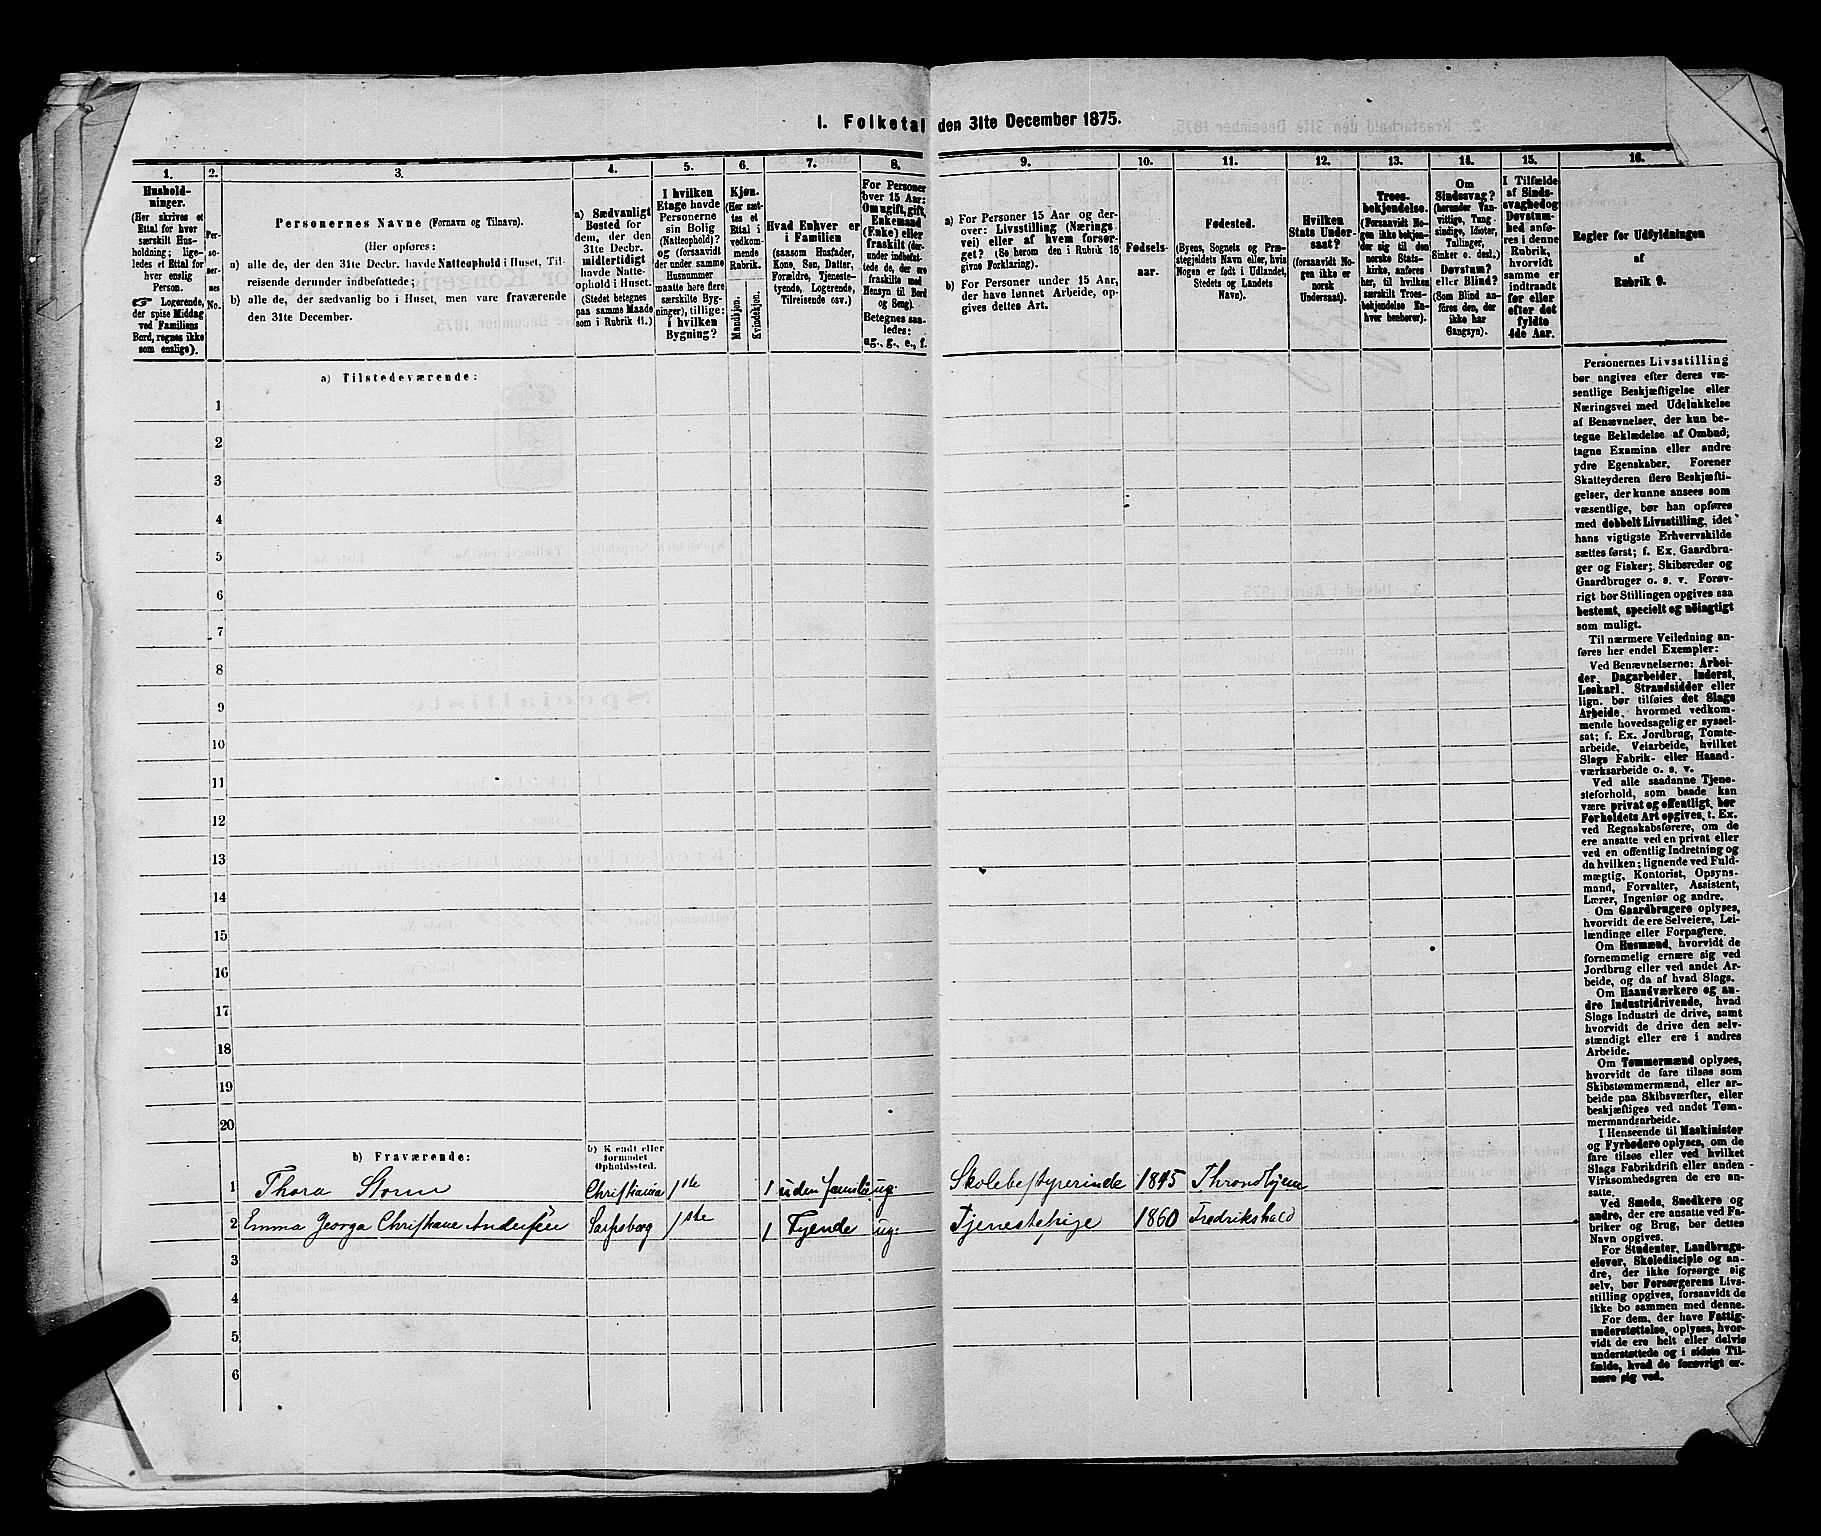 I. Folketal den 31te December 1875.
1. 2. 3. 4. 5. 6. 7. 8. 9. 10. 11. 12. 13. 14. 15. 16.
Hushold-
ninger.
(Her skrives et
Ettal for hver
særskilt Hus-
holdning; lige-
ledes et Ettal for
hver enslig
Person.
☞ Logerende,
der spise Middag
ved Familiens
Bord, regnes ikke
som enslige).
Per-
so-
ner-
nes
No.
Personernes Navne (Fornavn og Tilnavn).
(Her opføres:
a) alle de, der den 31te Decbr. havde Natteophold i Huset, Til-
reisende derunder indbefattede;
b) alle de, der sædvanlig bo i Huset, men vare fraværende
den 31te December.
a) Sædvanligt
Bosted for
dem, der den
31te Decbr.
midlertidigt
havde Natte-
ophold i Huset.
(Stedet betegnes
paa samme Maade
som i Rubrik 11.)
I hvilken
Etage havde
Personerne
sin Bolig
(Natteophold)?
og (forsaavidt
der under samme
Husnummer
maatte høre flere
særskilte Byg-
ninger), tillige:
i hvilken
Bygning?
Kjøn.
(Her sæt-
tes et
Ettal i
vedkom-
mende
Rubrik.
Mandkjøn.
Kvindekjøn.
Hvad Enhver er
i Familien
(saasom Husfader,
Kone, Søn, Datter,
Forældre, Tjeneste-
tyende, Logerende,
Tilreisende osv.)
For Personer
over 15 Aar:
Om ugift, gift,
Enkemand
(Enke) eller
fraskilt (der-
under indbefat-
tede de, der ere
fraskilte med
Hensyn til Bord
og Seng).
Betegnes saa-
ledes:
ug., g., e., f.
a) For Personer 15 Aar og der-
over: Livsstilling (Nærings-
vei) eller af hvem forsør-
get? (Se herom den i Rubrik 16
givne Forklaring).
b) For Personer under 15 Aar,
der have lønnet Arbeide, op-
gives dettes Art.
Fødsels-
aar.
Fødested.
(Byens, Sognets og Præ-
stegjeldets Navn eller, hvis
Nogen er født i Udlandet,
Stedets og Landets
Navn).
Hvilken
Stats Under-
saat?
(forsaavidt No-
gen ikke er
norsk
Undersaat).
Troes-
bekjendelse.
(Forsaavidt No-
gen ikke bekjen-
der sig til den
norske Stats-
kirke, anføres
her, til hvilken
særskilt Troes-
bekjendelse En-
hver henhører).
Om
Sindssvag?
(herunder Van-
vittige, Tung-
sindige, Idioter,
Tullinger,
Sinker o. desl.)
Døvstum?
eller Blind?
(Som Blind an-
føres den, der
ikke har
Gangsyn).
I Tilfælde
af Sinds-
svaghed og
Døvstum-
hed anfø-
res i denne
Rubrik,
hvorvidt
samme er
indtraadt
før eller
efter det
fyldte
4de Aar.
Regler for Udfyldningen
af
Rubrik 9.
a) Tilstedeværende:
1
2
3
4
5
6
7
8
9
10
11
12
13
14
15
16
17
18
19
20
b) Fraværende:
b) Kjendt eller
formodet
Opholdssted.
1 Thora Storm Christiania 1ste 1 uden familie ug. Skolebestyrerinde 1845 Throndhjem
2 Emma Georga Christiane Andersen Sarpsborg 1ste 1 Tyende ug. Tjenestepige 1860 Fredrikshald
3
4
5
6
Personernes Livsstilling
bør angives efter deres væ-
sentlige Beskjæftigelse eller
Næringsvei med Udelukkelse
af Benævnelser, der kun be-
tegne Beklædelse af Ombud,
tagne Examina eller andre
ydre Egenskaber. Forener
Skatteyderen flere Beskjæfti-
gelser, der kunne ansees som
væsentlige, bør han opføres
med dobbelt Livsstilling, idet
hans vigtigste Erhvervskilde
sættes først; f. Ex. Gaardbru-
ger og Fisker; Skibsreder og
Gaardbruger o. s. v. Forøv-
rigt bør Stillingen opgives saa
bestemt, specielt og nöiagtigt
som muligt.
Til nærmere Veiledning an-
føres her endel Exempler:
Ved Benævnelserne: Arbei-
der, Dagarbeider, Inderst,
Løskarl, Strandsidder eller
lign. bør tilføies det Slags
Arbeide, hvormed vedkom-
mende hovedsagelig er syssel-
sat; f. Ex. Jordbrug, Tomte-
arbeide, Veiarbeide, hvilket
Slags Fabrik- eller Haand-
værksarbeide o. s. v.
Ved alle saadanne Tjene-
steforhold, som baade kan
være privat og offentligt, bør
Forholdets Art opgives, t. Ex.
ved Regnskabsførere, om de
ere ansatte ved en privat eller
ved en offentlig Indretning og
da hvilken; lignende ved Fuld-
mægtig, Kontorist, Opsyns-
mand, Forvalter, Assistent,
Lærer, Ingeniør og andre.
Om Gaardbrugere oplyses,
hvorvidt de ere Selveiere, Lei-
lændinge eller Forpagtere.
Om Husmænd, hvorvidt de
fornemmelig ernære sig ved
Jordbrug eller ved andet Ar-
beide, og da af hvad Slags.
Om Haandværkere og an-
dre Industridrivende, hvad
Slags Industri de drive, samt
hvorvidt de drive den selv-
stændigt eller ere i andres
Arbeide.
Om Tømmermænd oplyses,
hvorvidt de fare tilsøs som
Skibstømmermænd, eller ar-
beide paa Skibsværfter, eller
beskjæftiges ved andet Tøm-
mermandsarbeide.
I Henseende til Maskinister
og Fyrbødere oplyses, om de
fare tilsøs eller ved hvilket
Slags Fabrikdrift eller anden
Virksomhedsgren de ere an-
satte.
Ved Smede, Snedkere og
andre, der ere ansatte ved Fa-
briker og Brug, bør dettes
Navn opgives.
For Studenter, Landbrugs-
elever, Skoledisciple og an-
dre, der ikke forsørge sig
selv, bør Forsørgerens Livs-
stilling opgives, forsaavidt de
ikke bo sammen med denne.
For dem, der have Fattig-
understøttelse, oplyses, hvor-
vidt de ere helt eller delvis
understøttede og i sidste Til-
fælde, hvad de forøvrigt er-
nære sig ved.